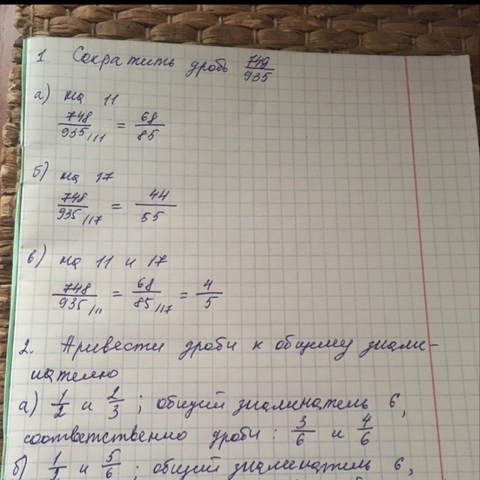 1. Сократить дробь 748/935
а) на 11
748/935 /11 = 68/85
б) на 17
748/935 /17 = 44/55
в) на 11 и 17
748/935 /11 = 68/85 /17 = 4/5
2. Привести дроби к общему знаме-
нателю
а) 1/2 и 2/3 ; общий знаменатель 6,
соответственно дроби : 3/6 и 4/6
б) и 5/6 ; общий знаменатель 6,